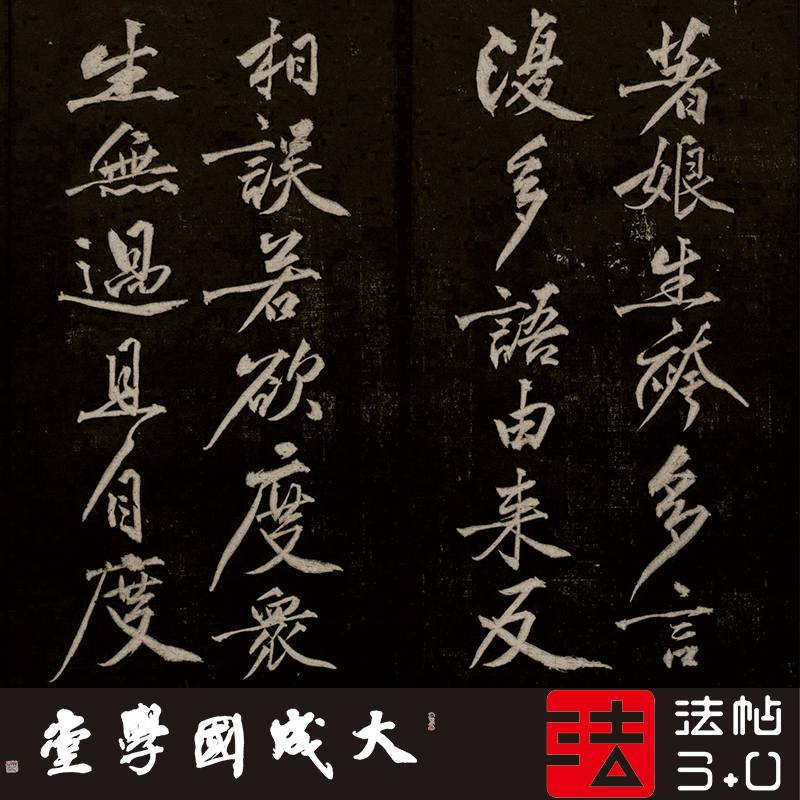 著娘生袴多言
復多語由来反
相誤若欲度衆
生無過且自度
大成國學堂
法
法帖
3.0